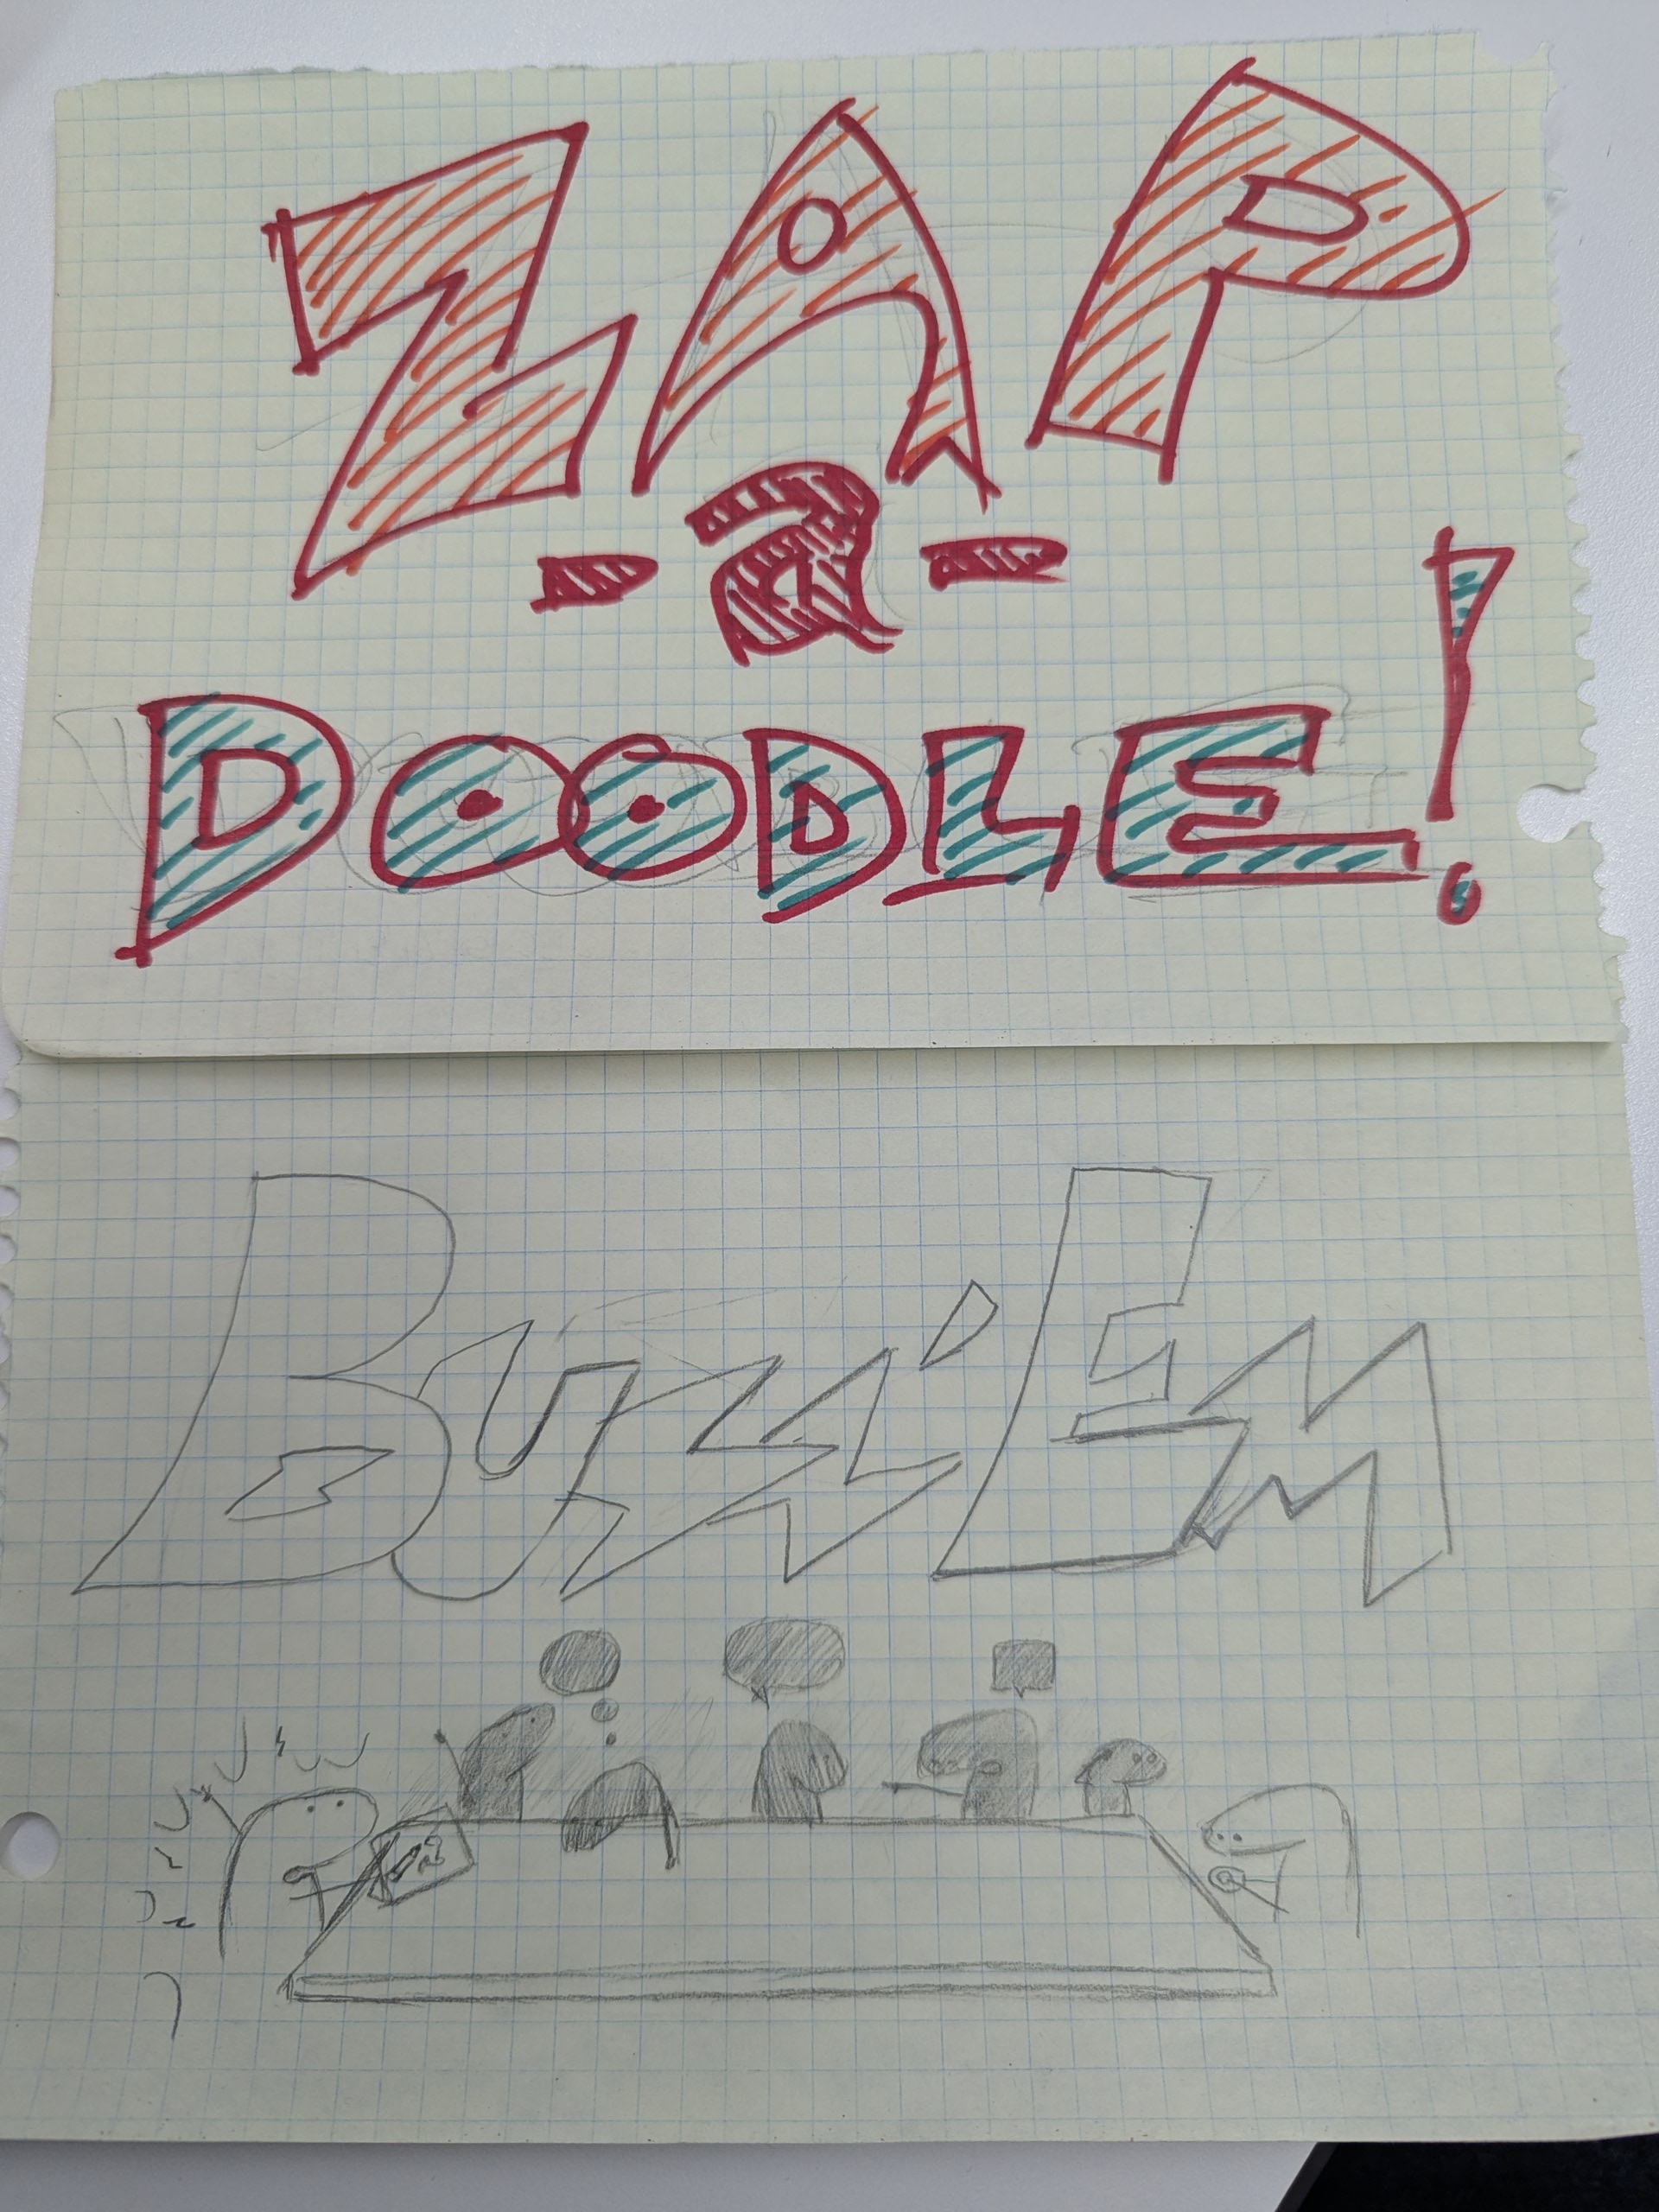 ZAP
-a-
DOODLE!
Buzz'Em